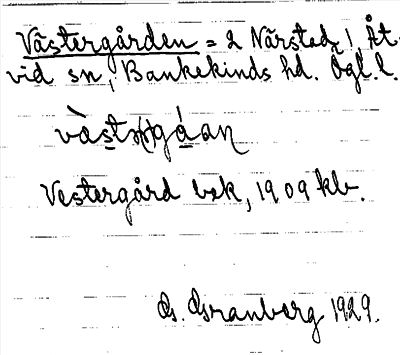 Västergården = 2 Närstad, Åt-
vid sn, Bankekinds hd. Ögl. l.
Vestergård bek, 1909 klv.
G. Granberg 1929.